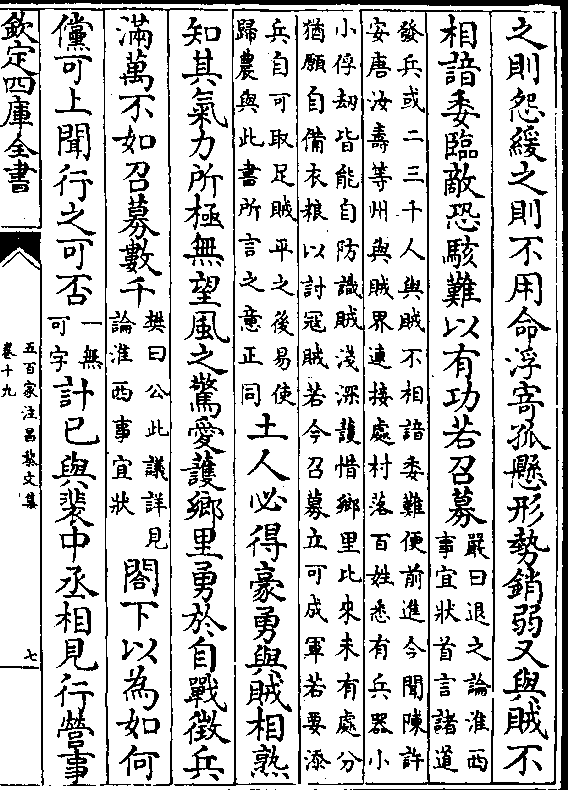 之則怨緩之則不用命浮寄孤懸形勢銷弱又與賊不
相諳委臨敵恐駭難以有功若召募嚴曰退之論淮西
事宜狀首言諸道
發兵或二三千人與賊不相諳委難便前進今聞陳許
安唐汝壽等州與賊界連接處村落百姓悉有兵器小
小俘劫皆能自防識賊淺深護惜鄉里比來未有處分
猶願自備衣粮以討冦賊若今召募立可成軍若要添
兵自可取足賊平之後易使
歸農與此書所言之意正同土人必得豪勇與賊相熟
知其氣力所極無望風之驚愛護鄉里勇於自戰徵兵
滿萬不如召募數千樊曰公此議詳見
論淮西事宜狀閣下以為如何
儻可上聞行之可否一無
可字計已與裴中丞相見行營事
欽定四庫全書
五百家注昌黎文集
卷十九
七